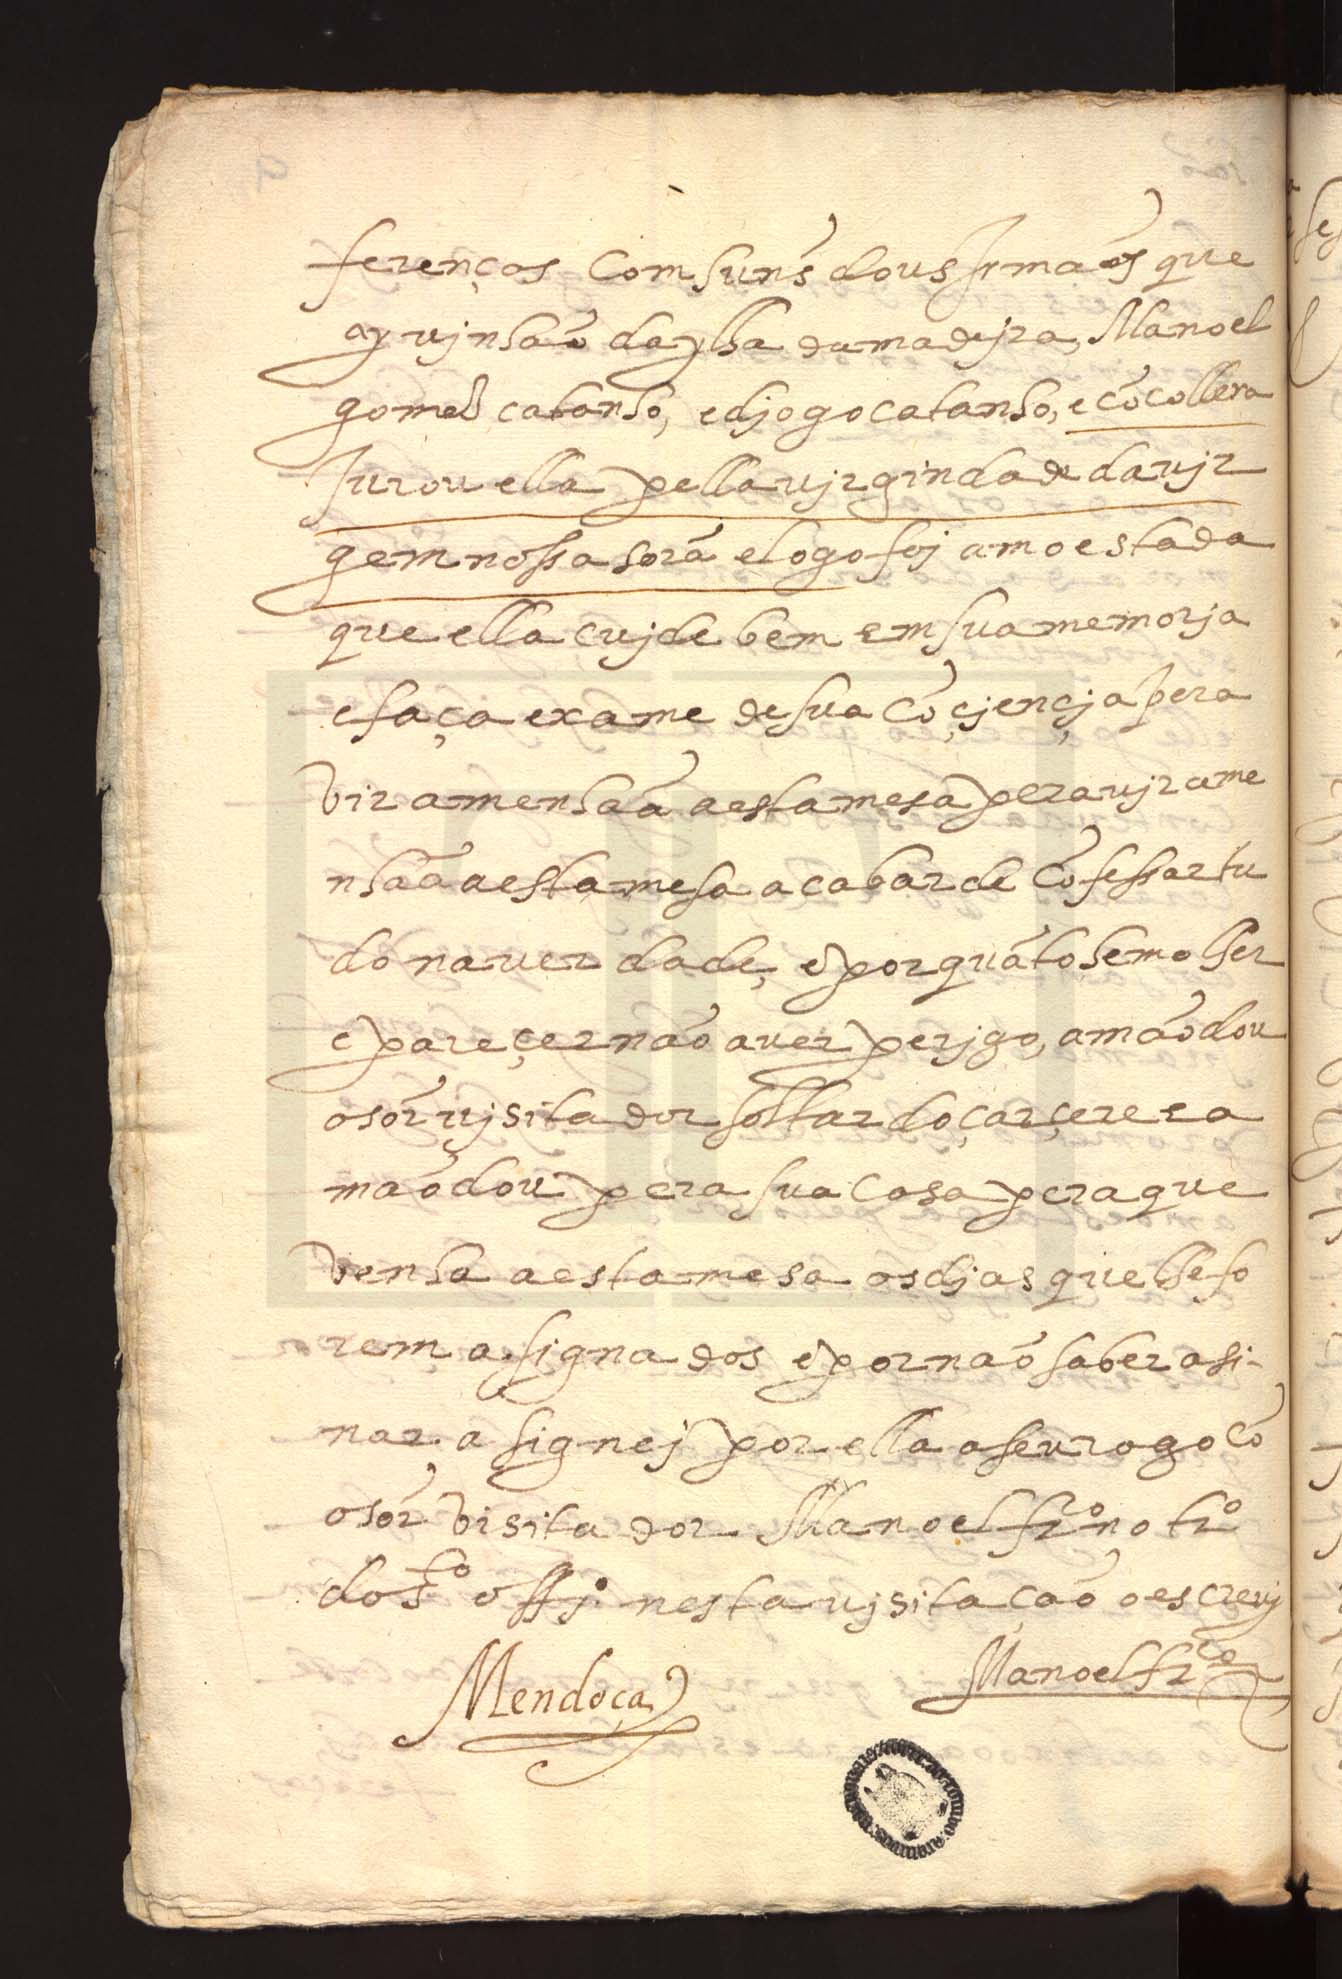 ferenças Com huns dous Jrmaõs que
aj vjnhaõ da jlha da madejra, Manoel
gomes catanho, e djogo catanho, e cõ collera
Jurou ella pella vjrgindade da vjr
gem nossa sorã e logo foj amoestada
que ella cujde bem em sua memorja
e faça exame de sua Cõçjençja pera
vir a menhaã a esta mesa pera vjr a me
nhaã a esta mesa acabar de Cõfessar tu
do na verdade, e por quãto he molher
e pareçer naõ aver perjgo, amãodou
o sor vjsitador soltar do carçere e a
maõdou pera sua casa pera que
venha a esta mesa os djas que lhe fo
rem asignados e por naõ saber asi-
nar asignej por ella a seu rogo cõ
o sor visitador Manoel frco notro
do sto offjo nesta vjsitaçaõ o escrevj
Mendoça
Manoel frco